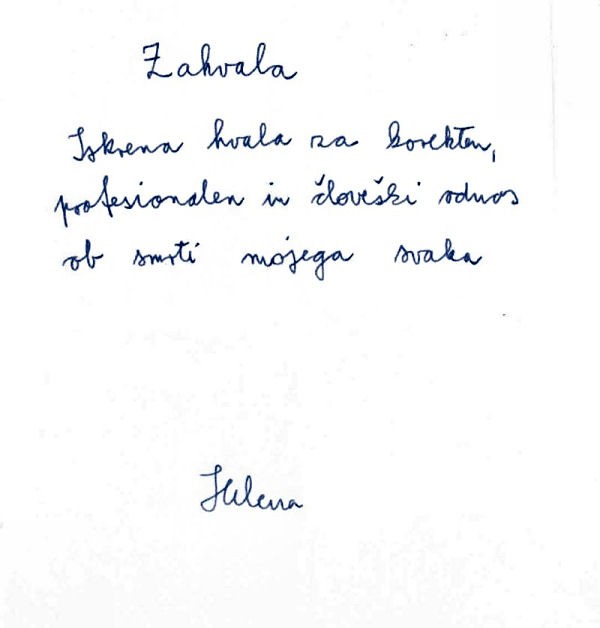 Zahvala
Iskrena hvala za korekten,
profesionalen in človeški odnos
ob smrti mojega svaka
Helena